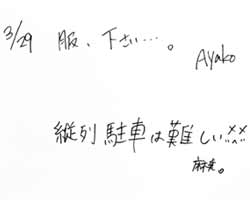 3/29 服、下さい…。
Ayako
縦列駐車は難しい××
麻美。